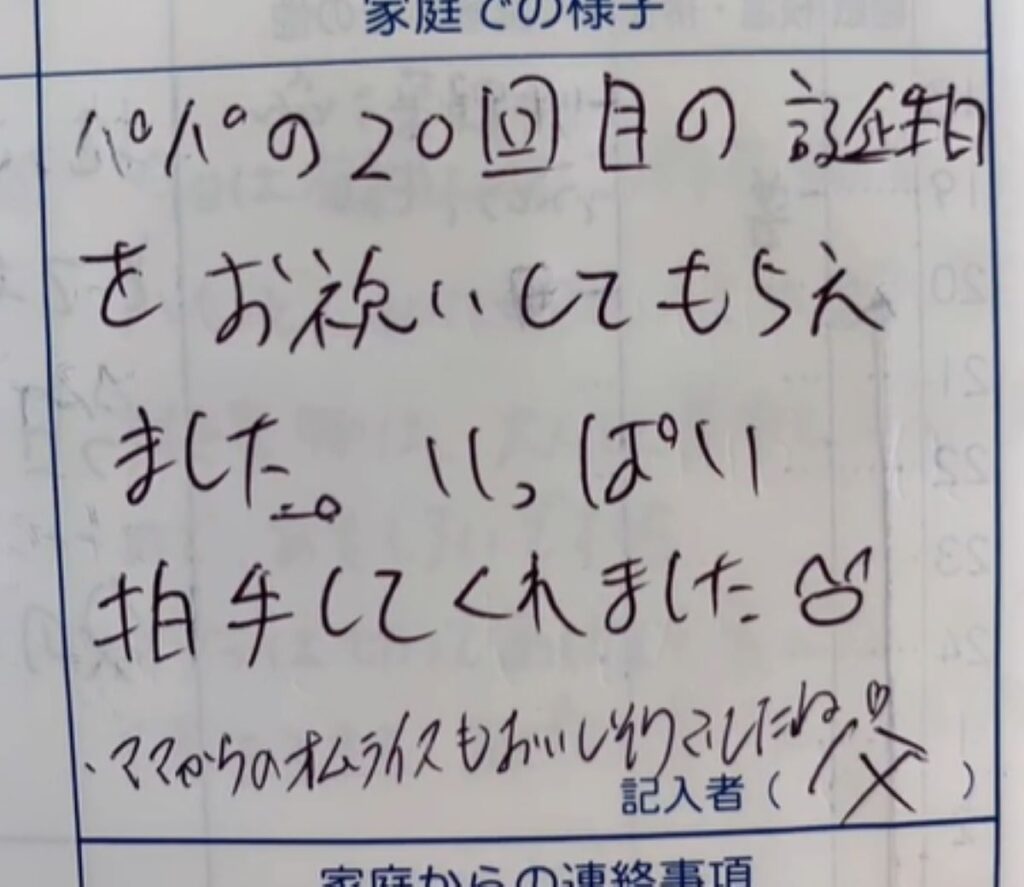 家庭での様子
パパの20回目の誕生日
をお祝いしてもらえ
ました。いっぱい
拍手してくれました
・ママからのオムライスもおいしそうでしたね♡
記入者（父）
家庭からの連絡事項